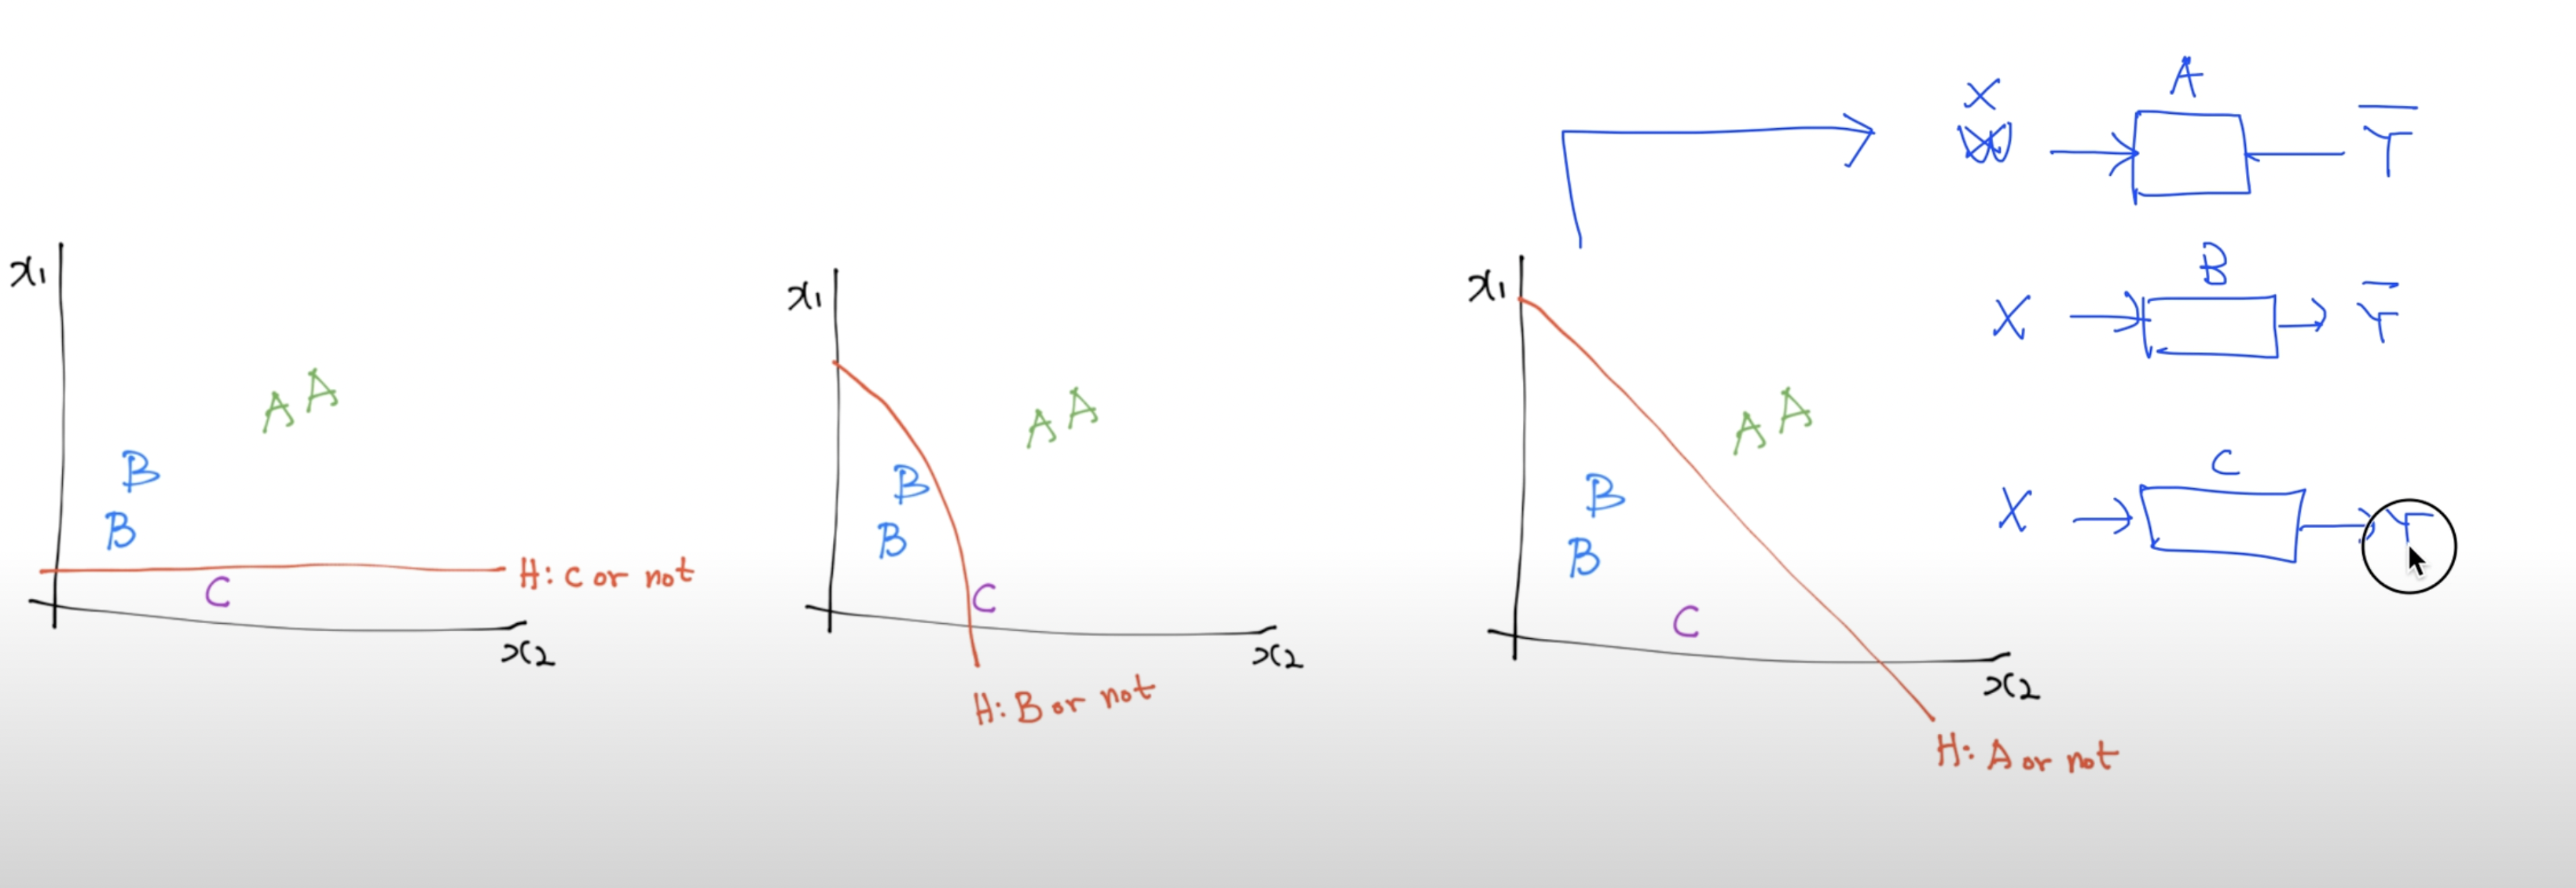 x1
A A
B
B
C
H: C or not
x2
x1
A A
B
B
C
x2
H: B or not
x1
A A
B
B
C
x2
H: A or not
A
X
Y
B
X
Y
C
X
Y